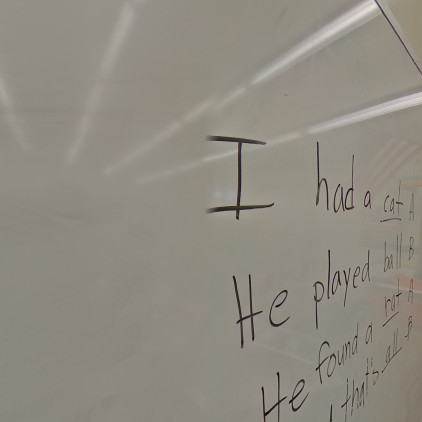 I had a cat A
He played ball B
He found a rat A
that's all B